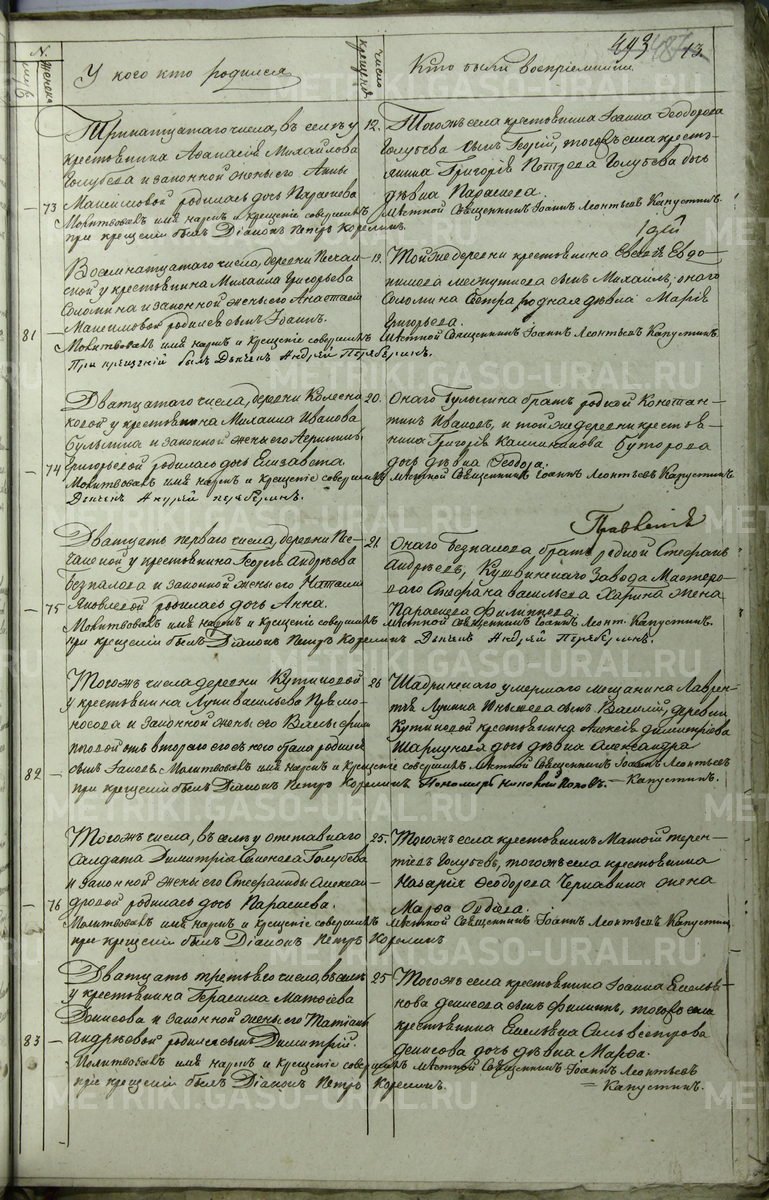 443 187 13
N.
женска
У кого кто родился
число крещенiя
Кто были воспрiемники
Тринатцатаго числа, въ селѣ у
крестьянина Афанасiя Михайлова
Голубева и законной жены его Анны
Максимовой родилась дочь Параскева
73
Молитвовалъ имя нарекъ и крещенiе совершилъ
при крещенiи былъ Дiаконъ Петръ Корелинъ.
12.
Тогожъ села крестьянина Iоанна Ѳеодорова
Голубева сынъ Георгiй, тогожъ села кресть-
янина Григорiя Петрова Голубева дочь
дѣвка Параскева.
мѣстной Священникъ Iоаннъ Леонтьевъ Капустинъ.
Iюлiй
Восемнатцатаго числа, деревни
у крестьянина Михаила Григорьева
Соломина и законной жены его Анастасiи
Максимовой родился сынъ Iоаннъ.
81
Молитвовалъ имя нарекъ и крещенiе совершилъ
При крещенiй былъ Дьячекъ Андрей
19.
Тойже деревни крестьянина Евсевiя Евдо-
кимова сынъ Михаилъ; онаго
Соломина сестра родная дѣвка Марiя
Григорьева.
мѣстной Священникъ Iоаннъ Леонтьевъ Капустинъ.
Дватцатаго числа, деревни
у крестьянина Михаила Иванова
Булыгина и законной жены его
Григорьевой родилась дочь Елизавета
74
Молитвовалъ имя нарекъ и крещенiе совершилъ
Дьячекъ Андрей
20.
Онаго Булыгина братъ родной Констан-
тинъ Ивановъ, и тойже деревни крестья-
нина Григорiя Буторова
дочь дѣвка Ѳеодора.
мѣстной Священникъ Iоаннъ Леонтьевъ Капустинъ
Дватцать перваго числа, деревни Пе-
чаной у крестьянина Георгiя Андрѣева
Безпалова и законной жены его Наталiи
Яковлевой родилась дочь Анна.
75
Молитвовалъ имя нарекъ и крещенiе совершилъ
при крещенiи былъ Дiаконъ Петръ Корелинъ Дьячекъ Андрей
21.
Онаго Безпалова братъ родной Стефанъ
Андрѣевъ, Кушвинскаго Завода Мастеро-
ваго Стефана Васильева Харина жена
Параскева Филиппова
мѣстной священникъ Iоаннъ Леонт. Капустинъ.
Тогожъ числа деревни Кутиковой
у крестьянина Луки Васильева
и законной жены его
отъ втораго его съ нею брака родился
сынъ Молитвовалъ имя нарекъ и Крещенiе совершилъ мѣстной Священникъ Iоаннъ Леонтьевъ
82
при крещенiи былъ Дiаконъ Петръ Корелинъ Пономарь Поповъ. — Капустинъ.
26
Шадринскаго умершаго мѣщанина Лаврен-
тiя Лукина сынъ Василiй, деревни
Кутиковой крестьянина Алексѣя Димитрiева
дочь дѣвка Александра
Тогожъ числа, въ селѣ у отставнаго
Салдата Димитрiя Семенова Голубева
и законной жены его Стефаниды Алексан-
дровой родилась дочь Параскева.
76
Молитвовалъ имя нарекъ и крещенiе совершилъ
при крещенiи былъ Дiаконъ Петръ Корелинъ
25.
Тогожъ села крестьянинъ Матѳiй Терен-
тiевъ Голубевъ, тогожъ села крестьянина
Назарiя Ѳеодорова Чернавина жена
Марѳа
мѣстной Священникъ Iоаннъ Леонтьевъ Капустинъ
Дватцать третьяго числа, въ селѣ
у крестьянина Герасима Матѳiева
Денисова и законной жены его Татiаны
Андрѣевой родился сынъ Димитрiй.
83
Молитвовалъ имя нарекъ и крещенiе совершилъ
при крещенiи былъ Дiаконъ Петръ Корелинъ.
25
Тогожъ села крестьянина Iоанна Емелья-
нова Денисова сынъ Филиппъ, тогожъ села
крестьянина Емельяна Сильвестрова
Денисова дочь дѣвка Марѳа.
мѣстной Священникъ Iоаннъ Леонтьевъ
= Капустинъ.
METRIKI.GASO-URAL.RU